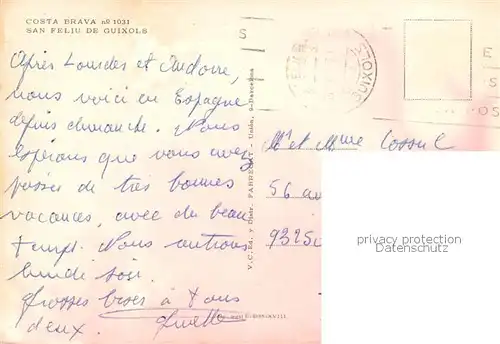 COSTA BRAVA nº 1031
SAN FELIU DE GUIXOLS
Après Lourdes et Andorre,
nous voici en Espagne
depuis dimanche. Nous
espérons que vous avez
passés de très bonnes
vacances, avec du beau
temps. Nous rentrons
lundi soir.
Grosses bises à tous
deux.
Mr et Mme
56 av
93250
privacy protection
Datenschutz